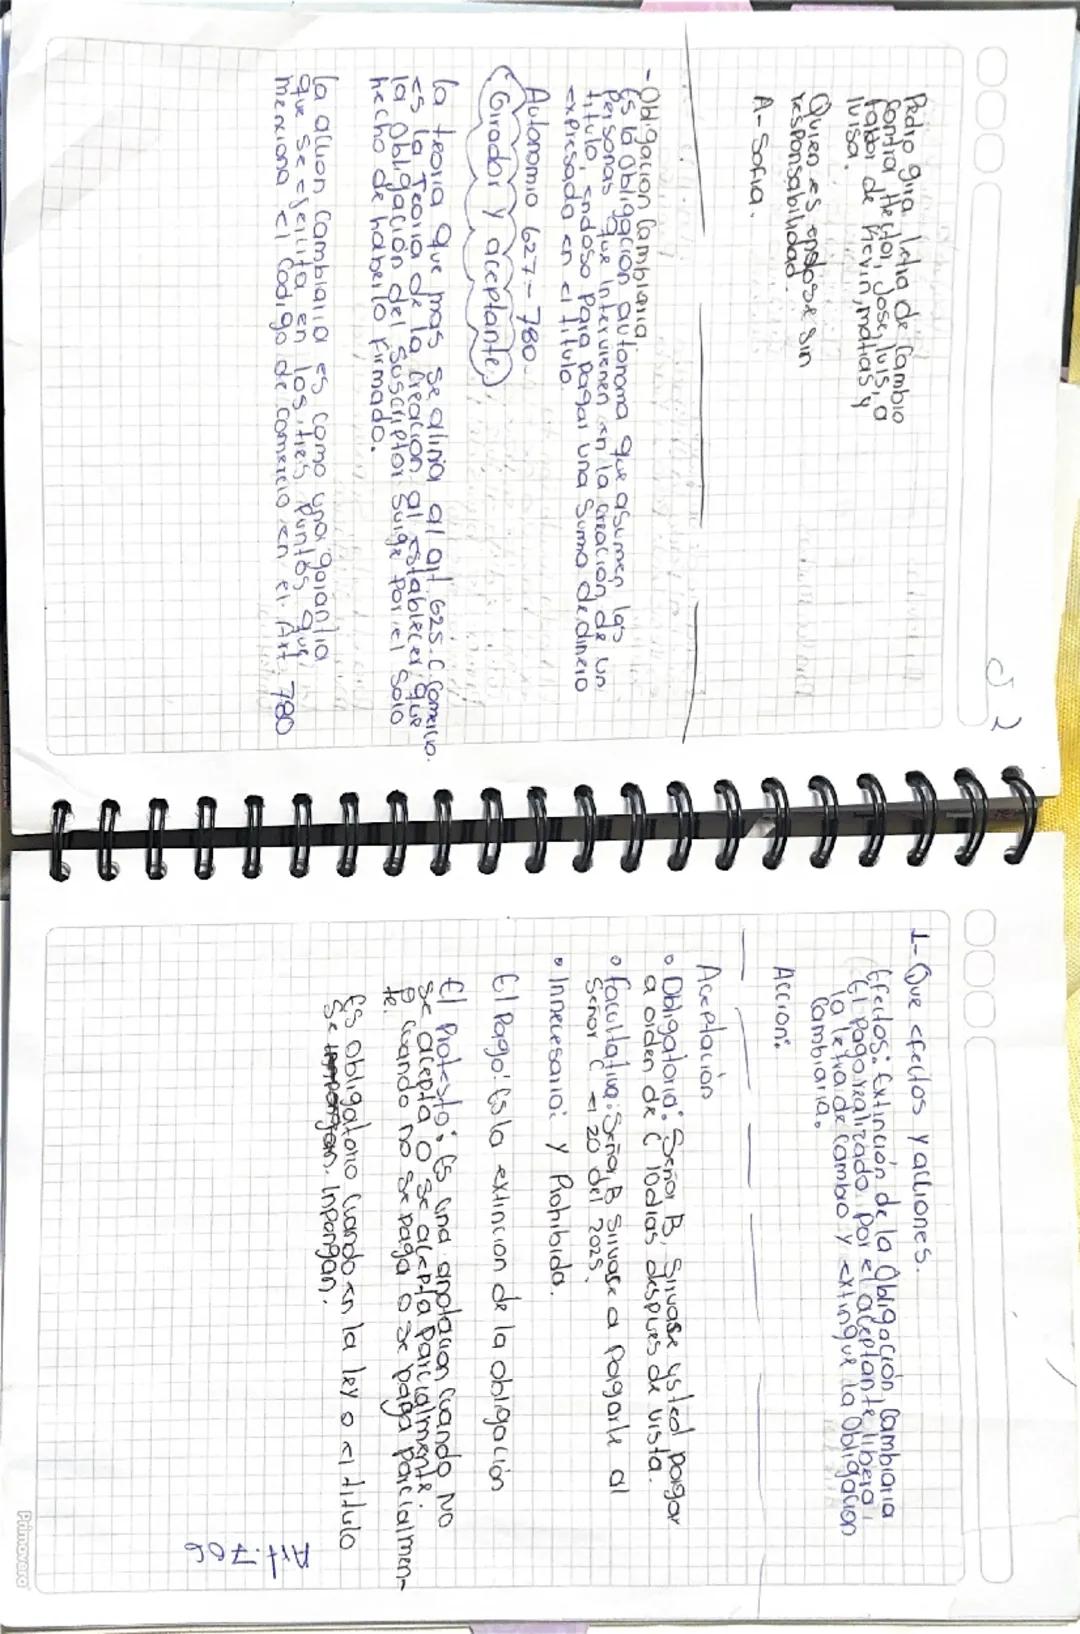 C 2
Pedro gira letra de Cambio
contra Hector, Jose y luis, a
favor de Kevin, matias y
luisa.
Quien es endosa sin
responsabilidad.
A- Sofia.
- Obligacion Cambiaria
Es la obligación autonoma que asumen las
personas que intervienen en la creación de un
titulo, endoso para pagar una suma de dinero
expresada en el titulo
Autonomio 627-780
Girador y aceptante
la teoria que mas se alinia al art. 625. C. Comercio.
es la Teoria de la Creacion al establecer que
la obligación del suscriptor surge por el solo
hecho de haberlo firmado.
la accion cambiaria es como una garantia
que se ejercita en los tres puntos que
menciona el Codigo de Comercio en el Art. 780
1- Que efectos y acciones.
Efectos: Extinción de la Obligación Cambiaria
El Pago realizado por el aceptante libera
la letra de Cambio y extingue la Obligacion
Cambiaria.
Accion:
Aceptación
• Obligatoria: Señor B, Sirvase usted pagar
a orden de C 10 dias despues de vista.
• facultativa: Señor B sirvase a pagarle al
señor C el 20 del 2025.
• Innecesaria: y Prohibida.
El Pago: Es la extincion de la obligación
El Protesto: Es una anotacion cuando no
se acepta o se acepta parcialmente.
o cuando no se paga o se paga parcialmen-
te.
Es obligatorio cuando en la ley o el titulo
se Inpongan.
Art. 706
Primavera